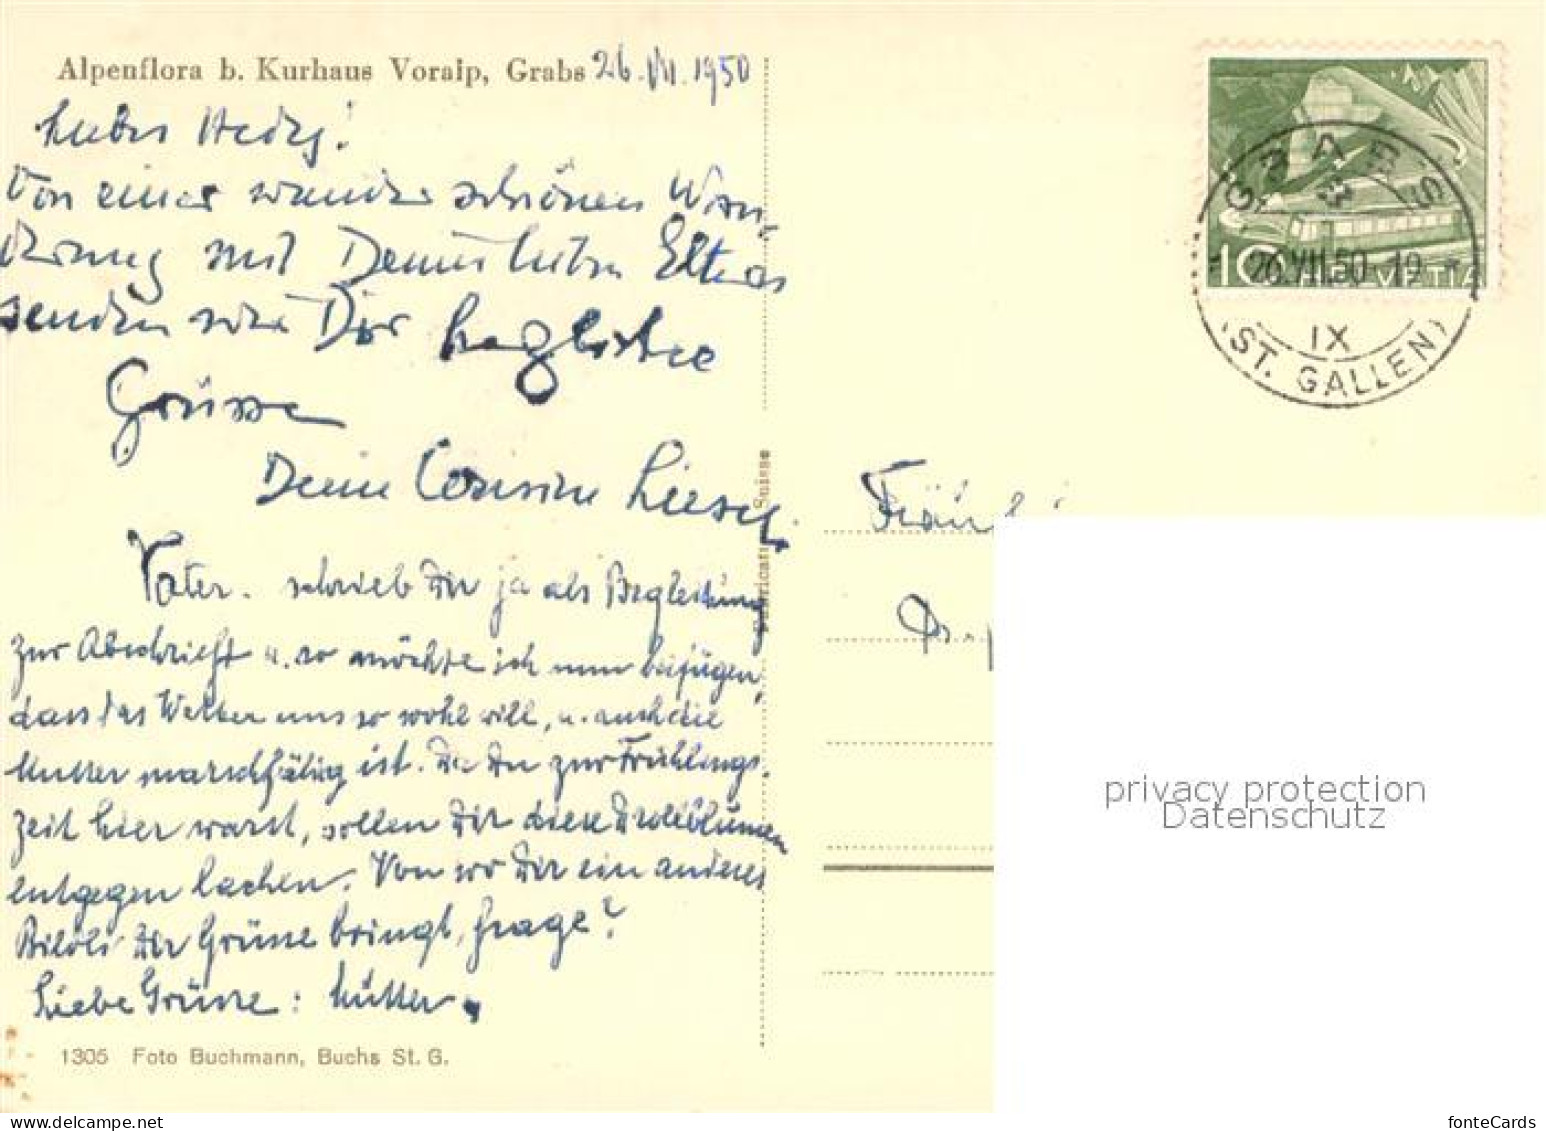 Alpenflora b. Kurhaus Voralp, Grabs 26.VII.1950
Liebes Hedy!
Von einer wunderschönen Wan-
derung mit Deinen lieben Eltern
senden wir Dir herzliche
Grüsse
Deine Cousine Liesel
Vater. schrieb Dir ja als Begleitung
zur Abschrift u. so möchte ich nun beifügen,
dass das Wetter uns so wohl will, u. auch die
Mutter marschfähig ist. Da Du zur Frühlings-
zeit hier warst, sollen Dir diese
entgegen lachen. Von wo Dir ein anderes
Bildli Dir Grüsse bringt, frage?
Liebe Grüsse: Mutter.
1305 Foto Buchmann, Buchs St. G.
Suisse
GRABS
26.VII.50-19
IX
(ST. GALLEN)
10 HELVETIA
Fräul
privacy protection
Datenschutz
fonteCards